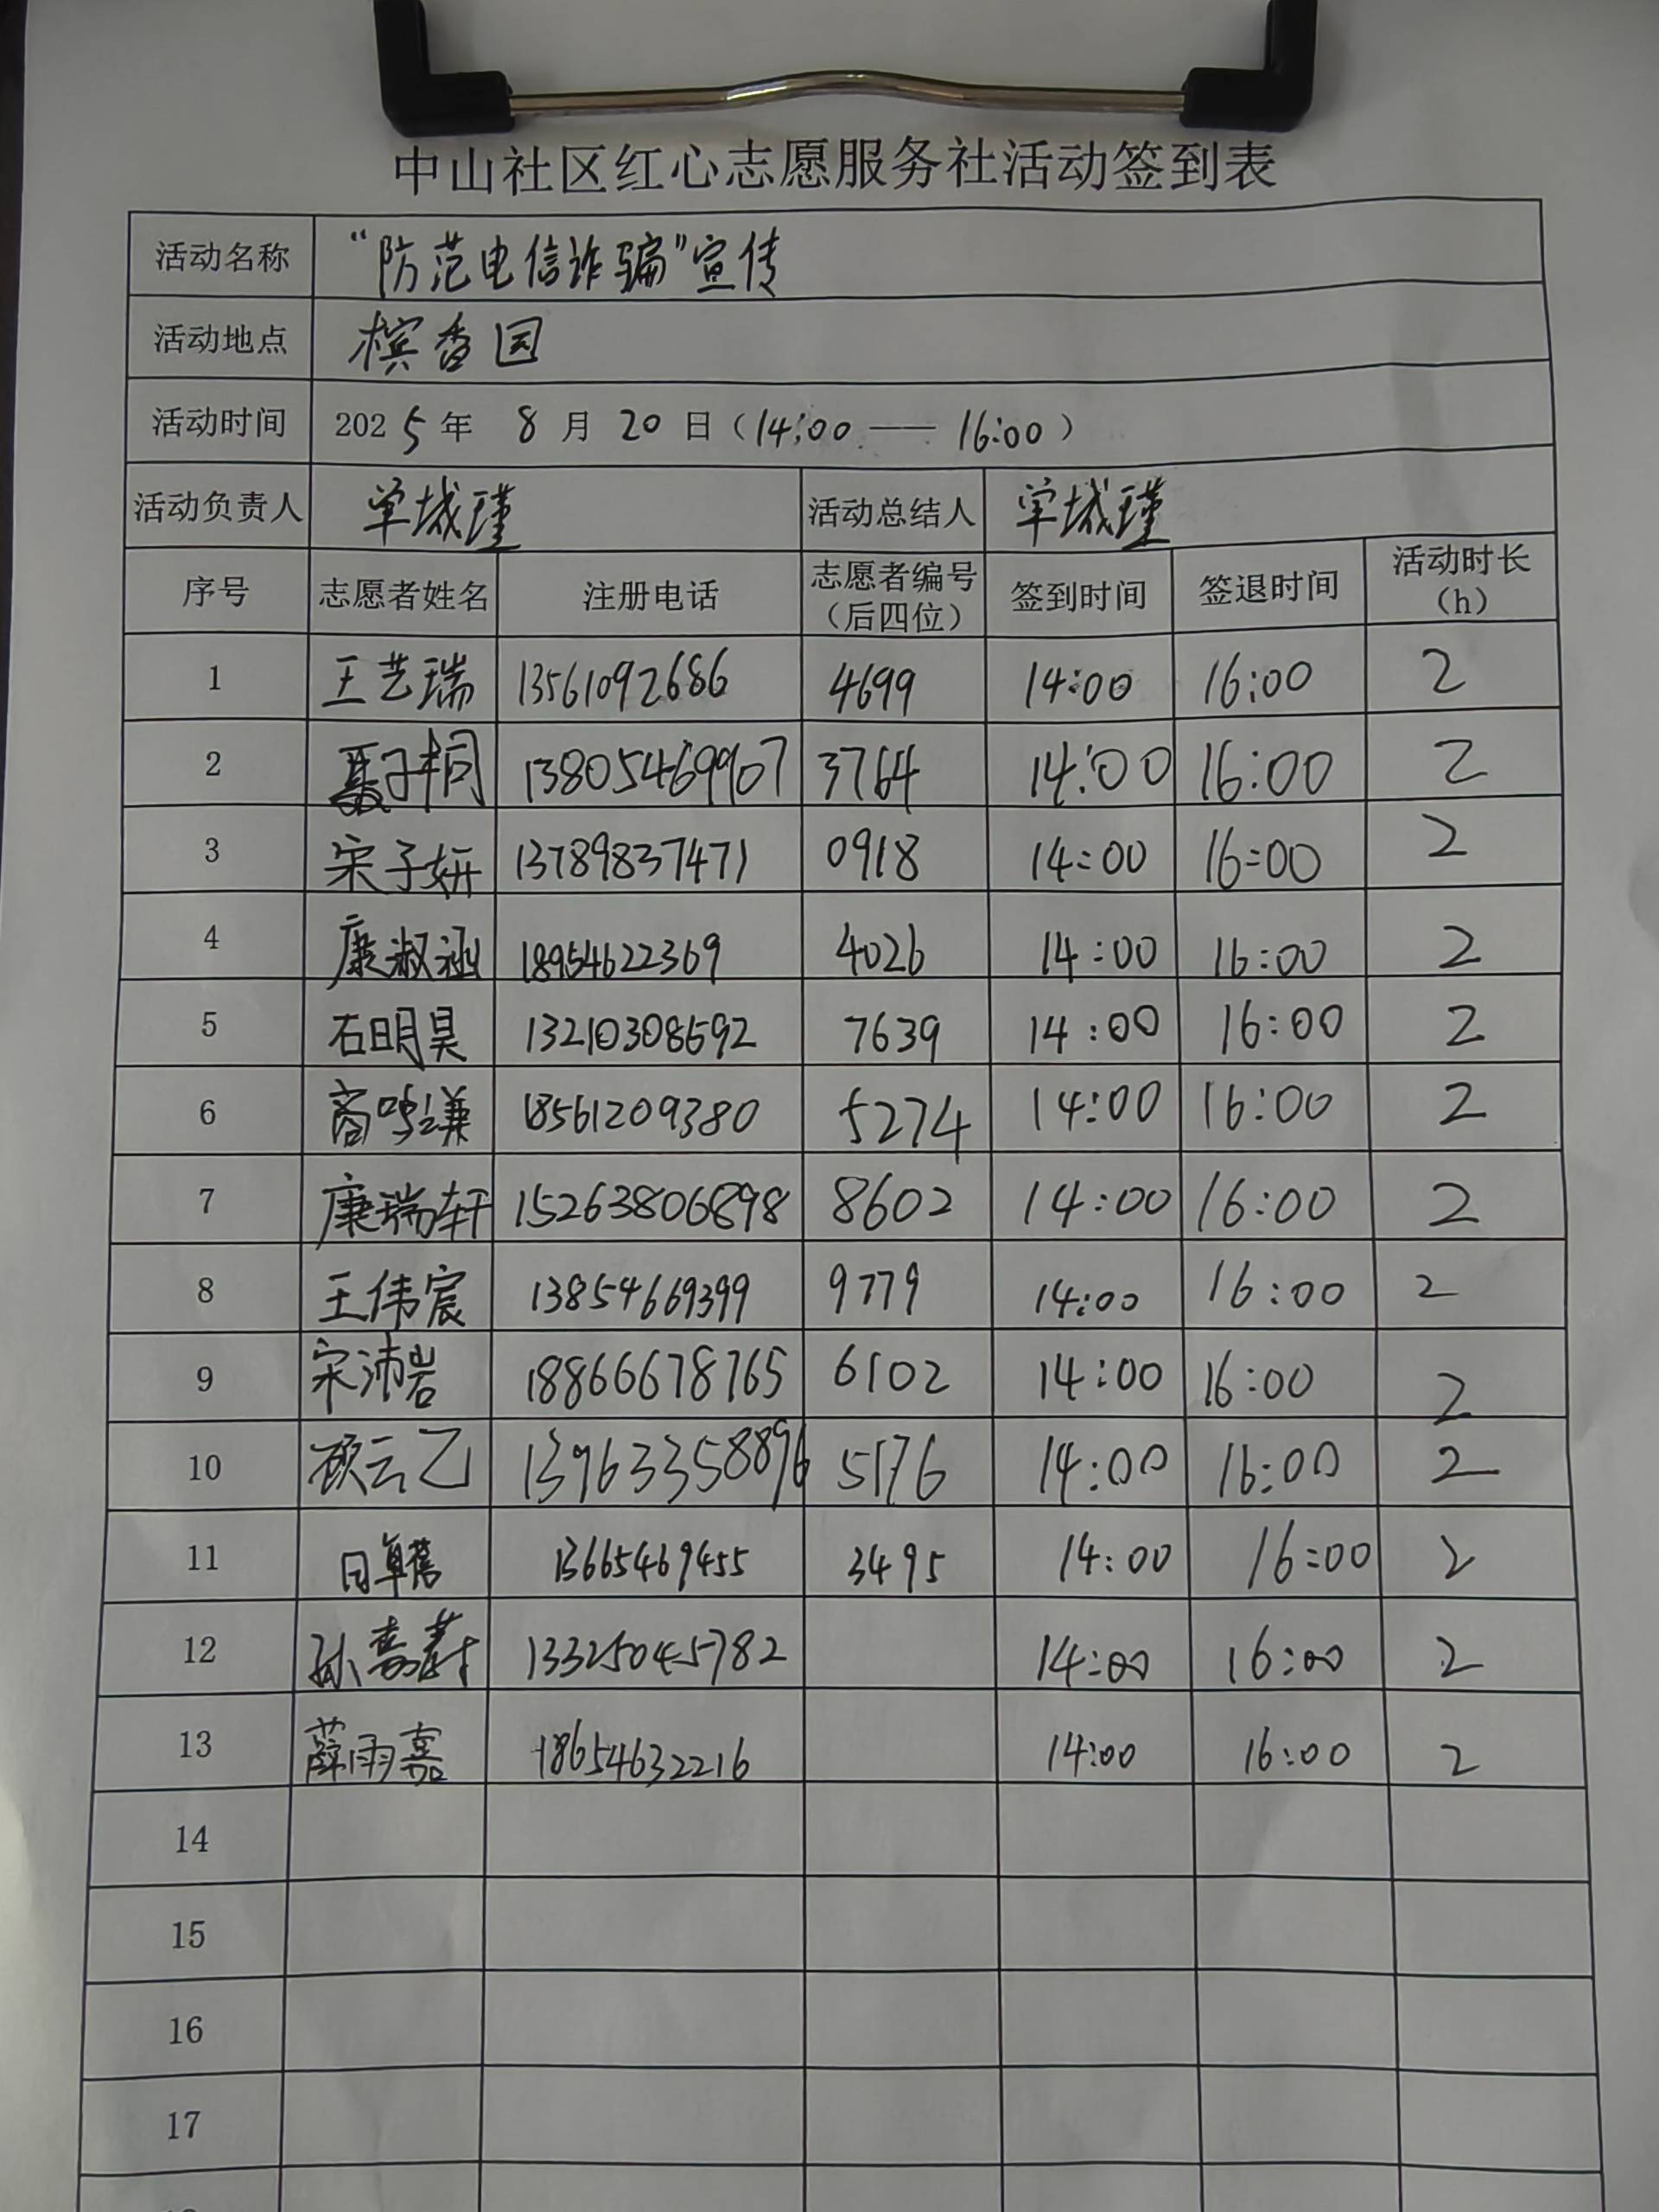 中山社区红心志愿服务社活动签到表
活动名称 “防范电信诈骗”宣传
活动地点 槟香园
活动时间 2025年 8月20日（14:00 —— 16:00）
活动负责人 单城瑾 活动总结人 单城瑾
序号 志愿者姓名 注册电话 志愿者编号（后四位） 签到时间 签退时间 活动时长（h）
1 王艺瑞 13561092686 4699 14:00 16:00 2
2 聂子桐 13805469907 3764 14:00 16:00 2
3 宋子妍 13789837471 0918 14:00 16:00 2
4 康淑涵 18954622369 4026 14:00 16:00 2
5 石明昊 13210308592 7639 14:00 16:00 2
6 商 谦 18561209380 5274 14:00 16:00 2
7 康瑞轩 15263806898 8602 14:00 16:00 2
8 王伟宸 13854669399 9779 14:00 16:00 2
9 宋沛岩 18866678765 6102 14:00 16:00 2
10 顾云乙 13963358896 5176 14:00 16:00 2
11 13665469455 3495 14:00 16:00 2
12 孙嘉蔚 13325045782 14:00 16:00 2
13 薛雨嘉 18654632216 14:00 16:00 2
14
15
16
17